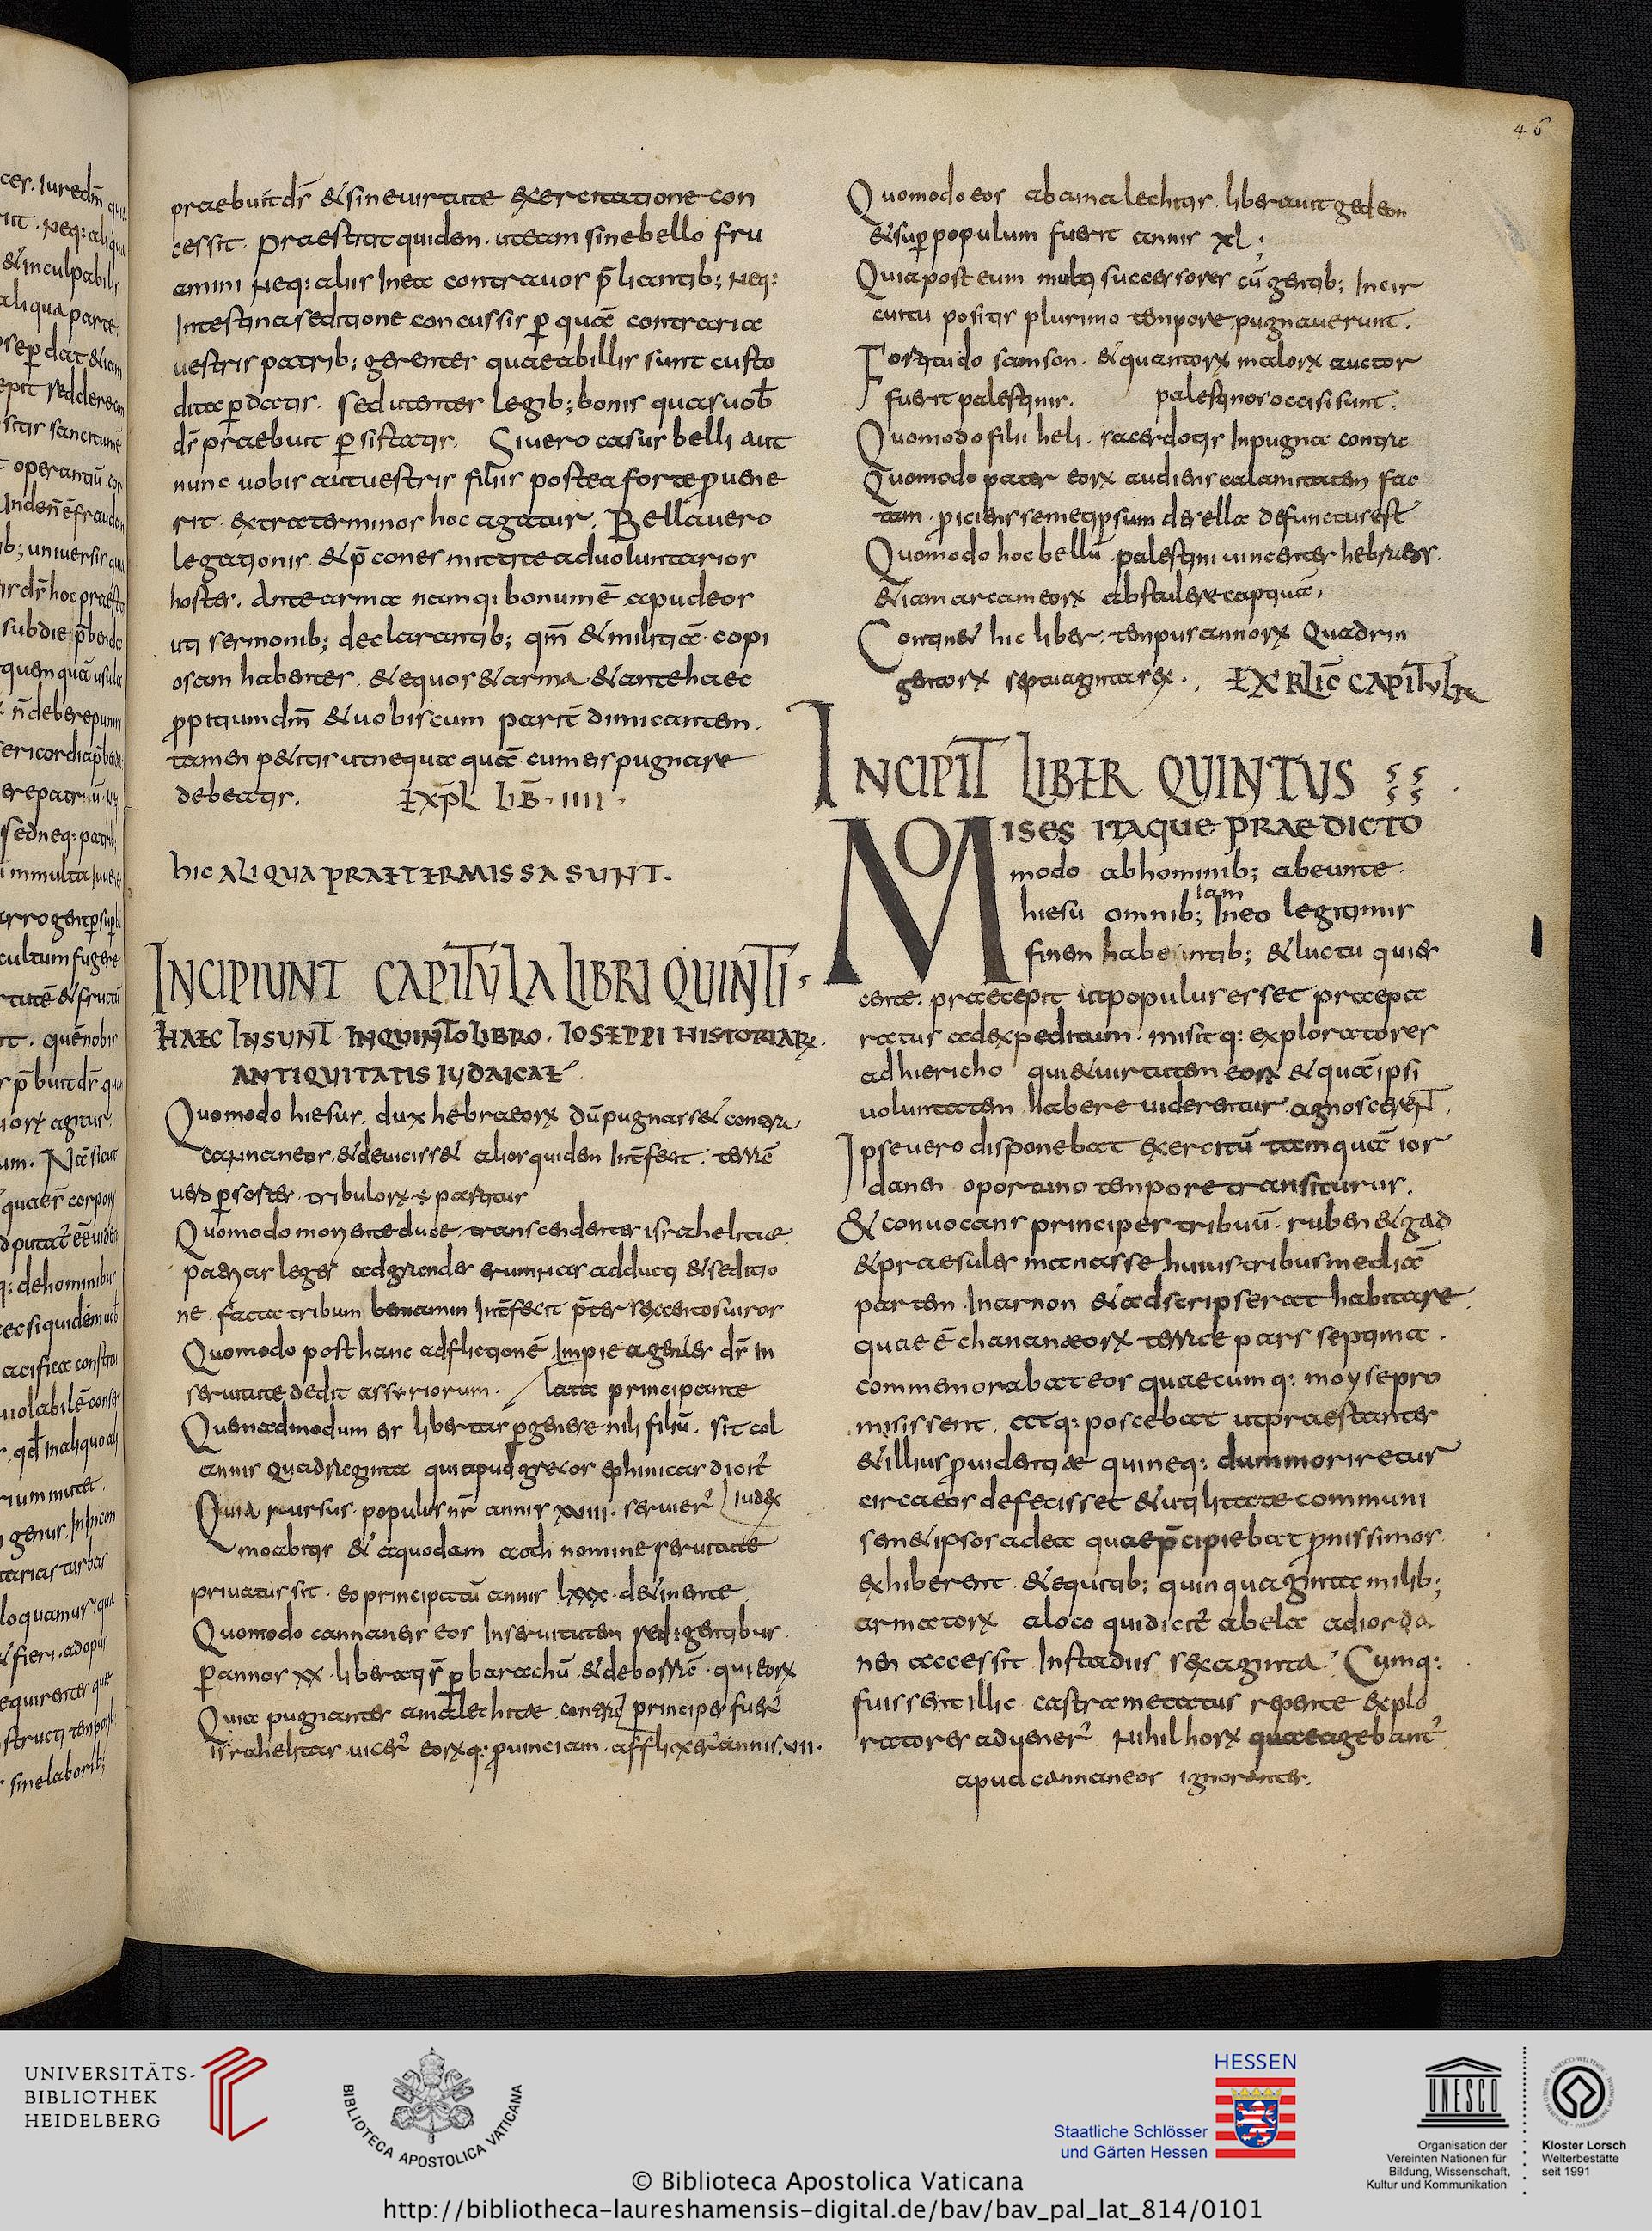 46
praebuit dr̄ & sine uirtute exercitatione con
cessit. Praestat quidem. ut eam sine bello fru
amini neq: aliis in ea contra uos p̄liantib; neq:
intestina seditione concussis p quā contraria
uestris patrib; gerentes quae ab illis sunt custo
dita pdatis. sed utentes legib; bonis quas uob̄
dr̄ praebuit psistatis. Si uero casus belli aut
nunc uobis aut uestris filiis postea forte puene
rit. extra terminos hoc agatur. Bella uero
legationis. & p̄cones mittite ad uoluntarios
hostes. Ante arma namq: bonum ē apud eos
uti sermonib; declarantib; qm̄ & militiā copi
osam habentes. & equos & arma & ante haec
ppitium dm̄ & uobiscum parit̄ dimicantem.
tamen petitis ut nequa quā cum eis pugnare
debeatis. EXPL LIB̄. IIII.
HIC ALIQUA PRAETERMISSA SUNT.
INCIPIUNT CAPITULA LIBRI QUINTI.
HAEC INSUNT IN QUINTO LIBRO. IOSEPPI HISTORIARꝜ.
ANTIQUITATIS IUDAICAE
Quomodo hiesus. dux hebraeorꝝ dū pugnasset contra
cannaneos. & deuicisset alios quidem int̄fecit. terrē
uero p sortes. tribulorꝝ ÷ partitur
Quomodo moriente duce. transcendentes israhelitae.
patrias leges ad grandes erumnas adducti & seditio
ne. facta tribum beniamin int̄fecit p̄ter sexcentos uiros
Quomodo post hanc adflictionē impie agentes dr̄ in
seruitute dedit assyriorum. / lata principante
Quenadmodum er libertas p genere nili filiū. sit col
annis quadraginta qui apud grecos ephinicas dicit᷑
Quia rursus. populus nr̄ annis XVIII. seruier᷑ / iudex
moabitis & a quodam aoth nomine seruitute
priuatus sit. eo principatū annis LXXX. detinente
Quomodo cannaneis eos in seruitutem redigentibus
p annos XX. liberatis̄ p barachū & deborrē. qui eorꝝ
Quia pugnantes amalechitae. contra / principes fuer᷑
israhelitas uicer᷑ eorꝝq: puinciam. afflixer᷑ annis. VII.
Quomodo eos ab amalechitis. liberauit gedeon
& sup populum fuerit annis XL;
Quia post eum multi successores cū gentib; in cir
cuitu positis plurimo tempore pugnauerunt.
Fortitudo samson. & quantorꝝ malorꝝ auctor
fuerit palestinis. palestinos occisi sunt.
Quomodo filii heli. sacerdotis in pugna contra
Quomodo pater eorꝝ audiens calamitatem fac
tam. piciens semetipsum de sella defunctus est
Quomodo hoc bellū palestini uincentes hebreos.
& iam arcam eorꝝ abstulere captiuā.
Continet hic liber. tempus annorꝝ quadrin
gentorꝝ septuaginta sex. EXPLIC̄ CAPITULA
INCIPIT LIBER QUINTUS
MISES ITAQUE PRAEDICTO
modo ab hominib; abeunte.
iam
hiesu omnib; in eo legitimis
finem habentib; & luctu quies
cente. praecepit ut populus esset praepa
ratus ad expeditum. misitq: exploratores
ad hiericho qui & uirtutem eorꝝ & quā ipsi
uoluntatem habere uiderentur. agnoscerent.
Ipse uero disponebat exercitū tamquā ior
danen oportuno tempore transiturus.
& conuocans principes tribuū. ruben & gad
& praesules manasse huius tribus mediā
partem. in arnon & adscripserat habitare
quae ē chananaeorꝝ terrae pars septima.
commemorabat eos quaecumq: moyse pro
misissent. atq: poscebat ut praestantes
& illius puidentiae qui neq: dum moriretur
circa eos defecisset & utilitate communi
semet ipsos ad ea quae p̄cipiebat pnissimos
exhiberent. & equitib; quinquaginta milib;
armatorꝝ a loco qui dicit᷑ abela ad iorda
nen accessit. in stadiis sexaginta. Cumq:
fuissent illic. castra metatus repente explo
ratores aduener᷑ nihil horꝝ quae agebant᷑
apud cannaneos ignorantes.
UNIVERSITÄTS-
BIBLIOTHEK
HEIDELBERG
BIBLIOTECA APOSTOLICA VATICANA
HESSEN
Staatliche Schlösser
und Gärten Hessen
UNESCO
Organisation der
Vereinten Nationen für
Bildung, Wissenschaft,
Kultur und Kommunikation
Kloster Lorsch
Welterbestätte
seit 1991
© Biblioteca Apostolica Vaticana
http://bibliotheca-laureshamensis-digital.de/bav/bav_pal_lat_814/0101